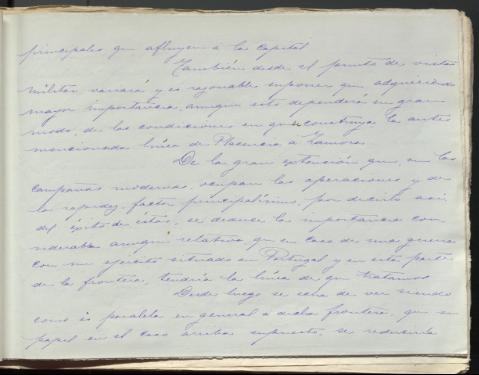 principales que afluyen a la capital
También desde el punto de vista
militar variará y es razonable suponer que adquiriendo
mayor importancia, aunque esto dependerá en gran
modo, de las condiciones en que construya la antes
mencionada línea de Plasencia a Zamora.
De la gran extensión que, en las
campañas modernas, ocupan las operaciones y de
la rapidez, factor principalísimo, por decirlo así
del éxito de éstas, se deduce la importancia con
siderable aunque relativa, que en caso de una guerra
con un ejército situado en Portugal y en esta parte
de la frontera, tendría la línea de que tratamos
Desde luego se echa de ver siendo
como es paralela en general a dicha frontera, que su
papel en el caso arriba supuesto, se reduciría